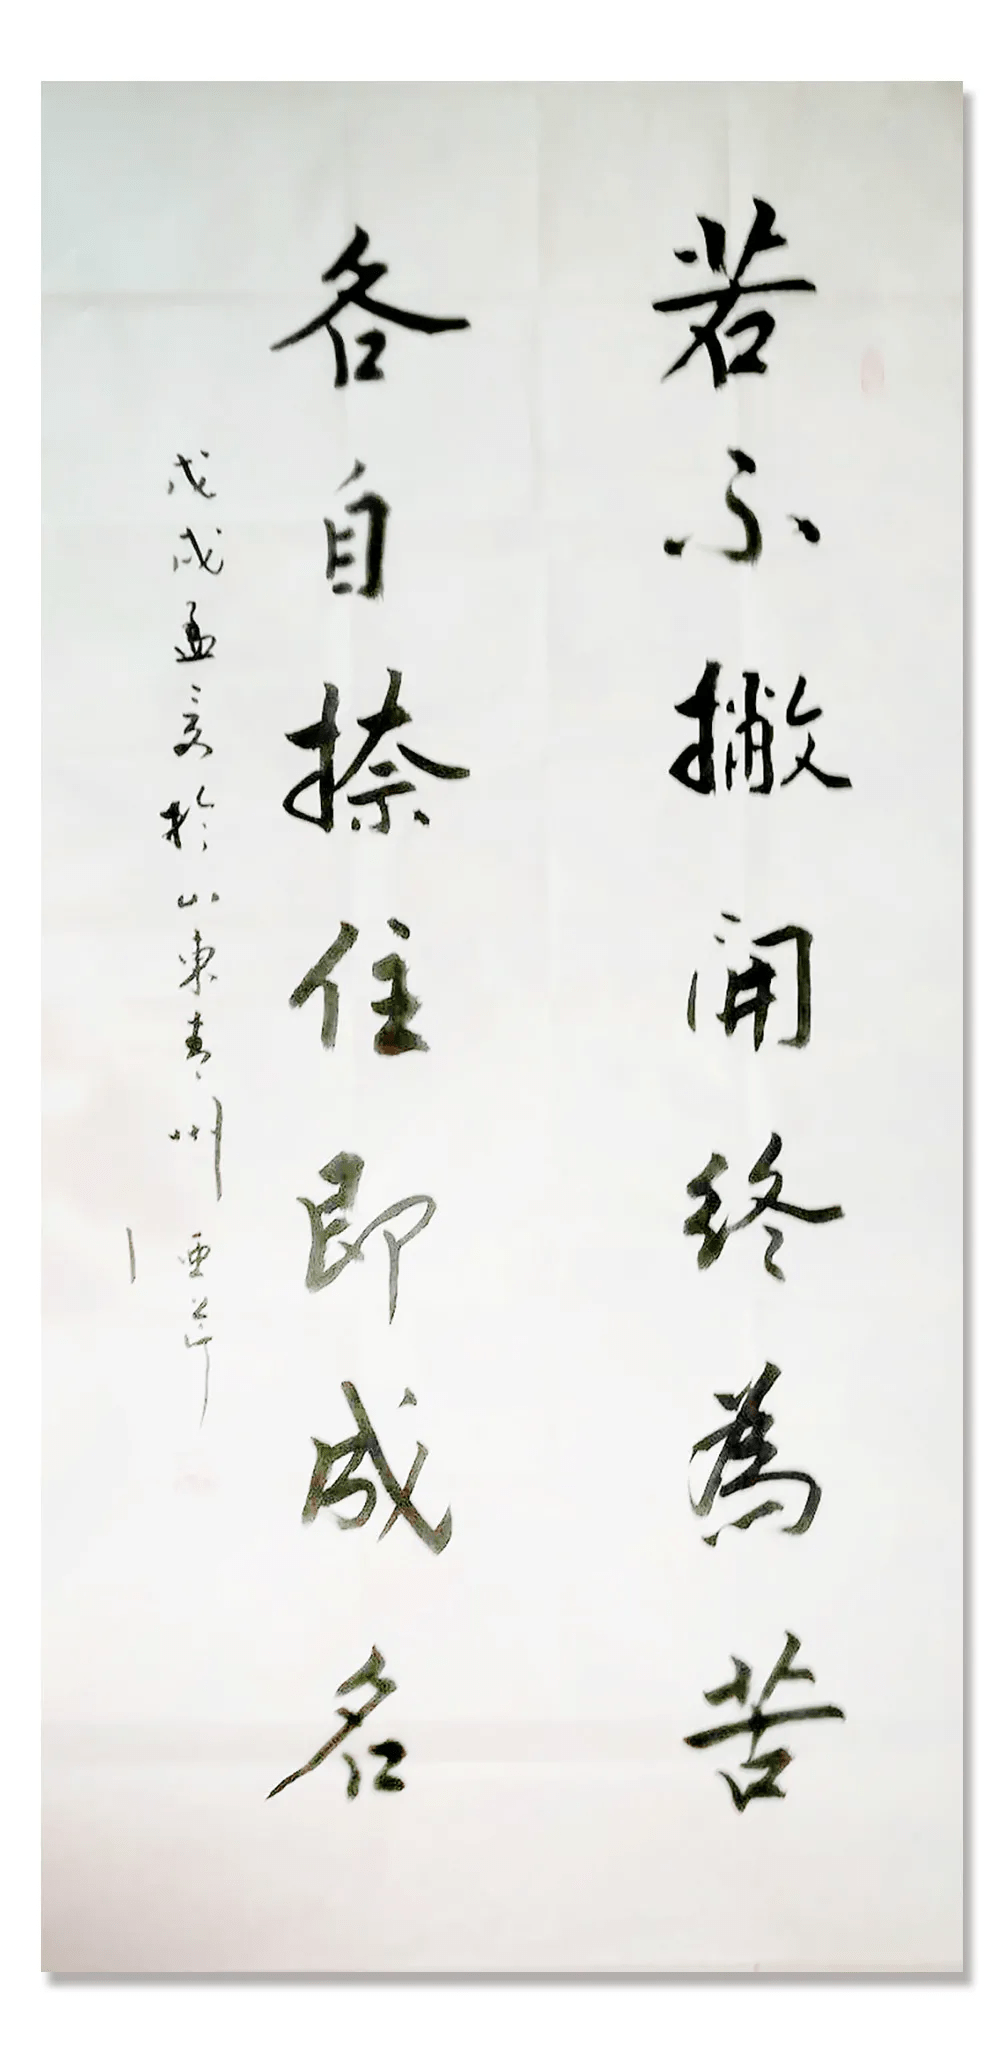 若不撇開终為苦
各自捺住即成名
戊戌孟夏於山東青州亚萍